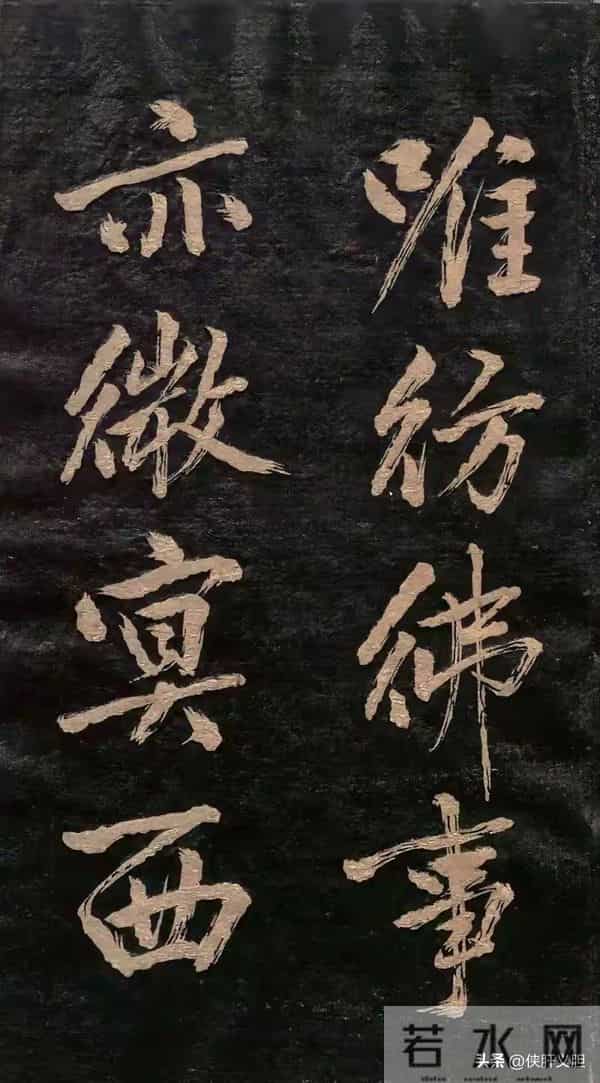 唯彷彿事
亦微冥西
若水网
头条 @侠肝义胆